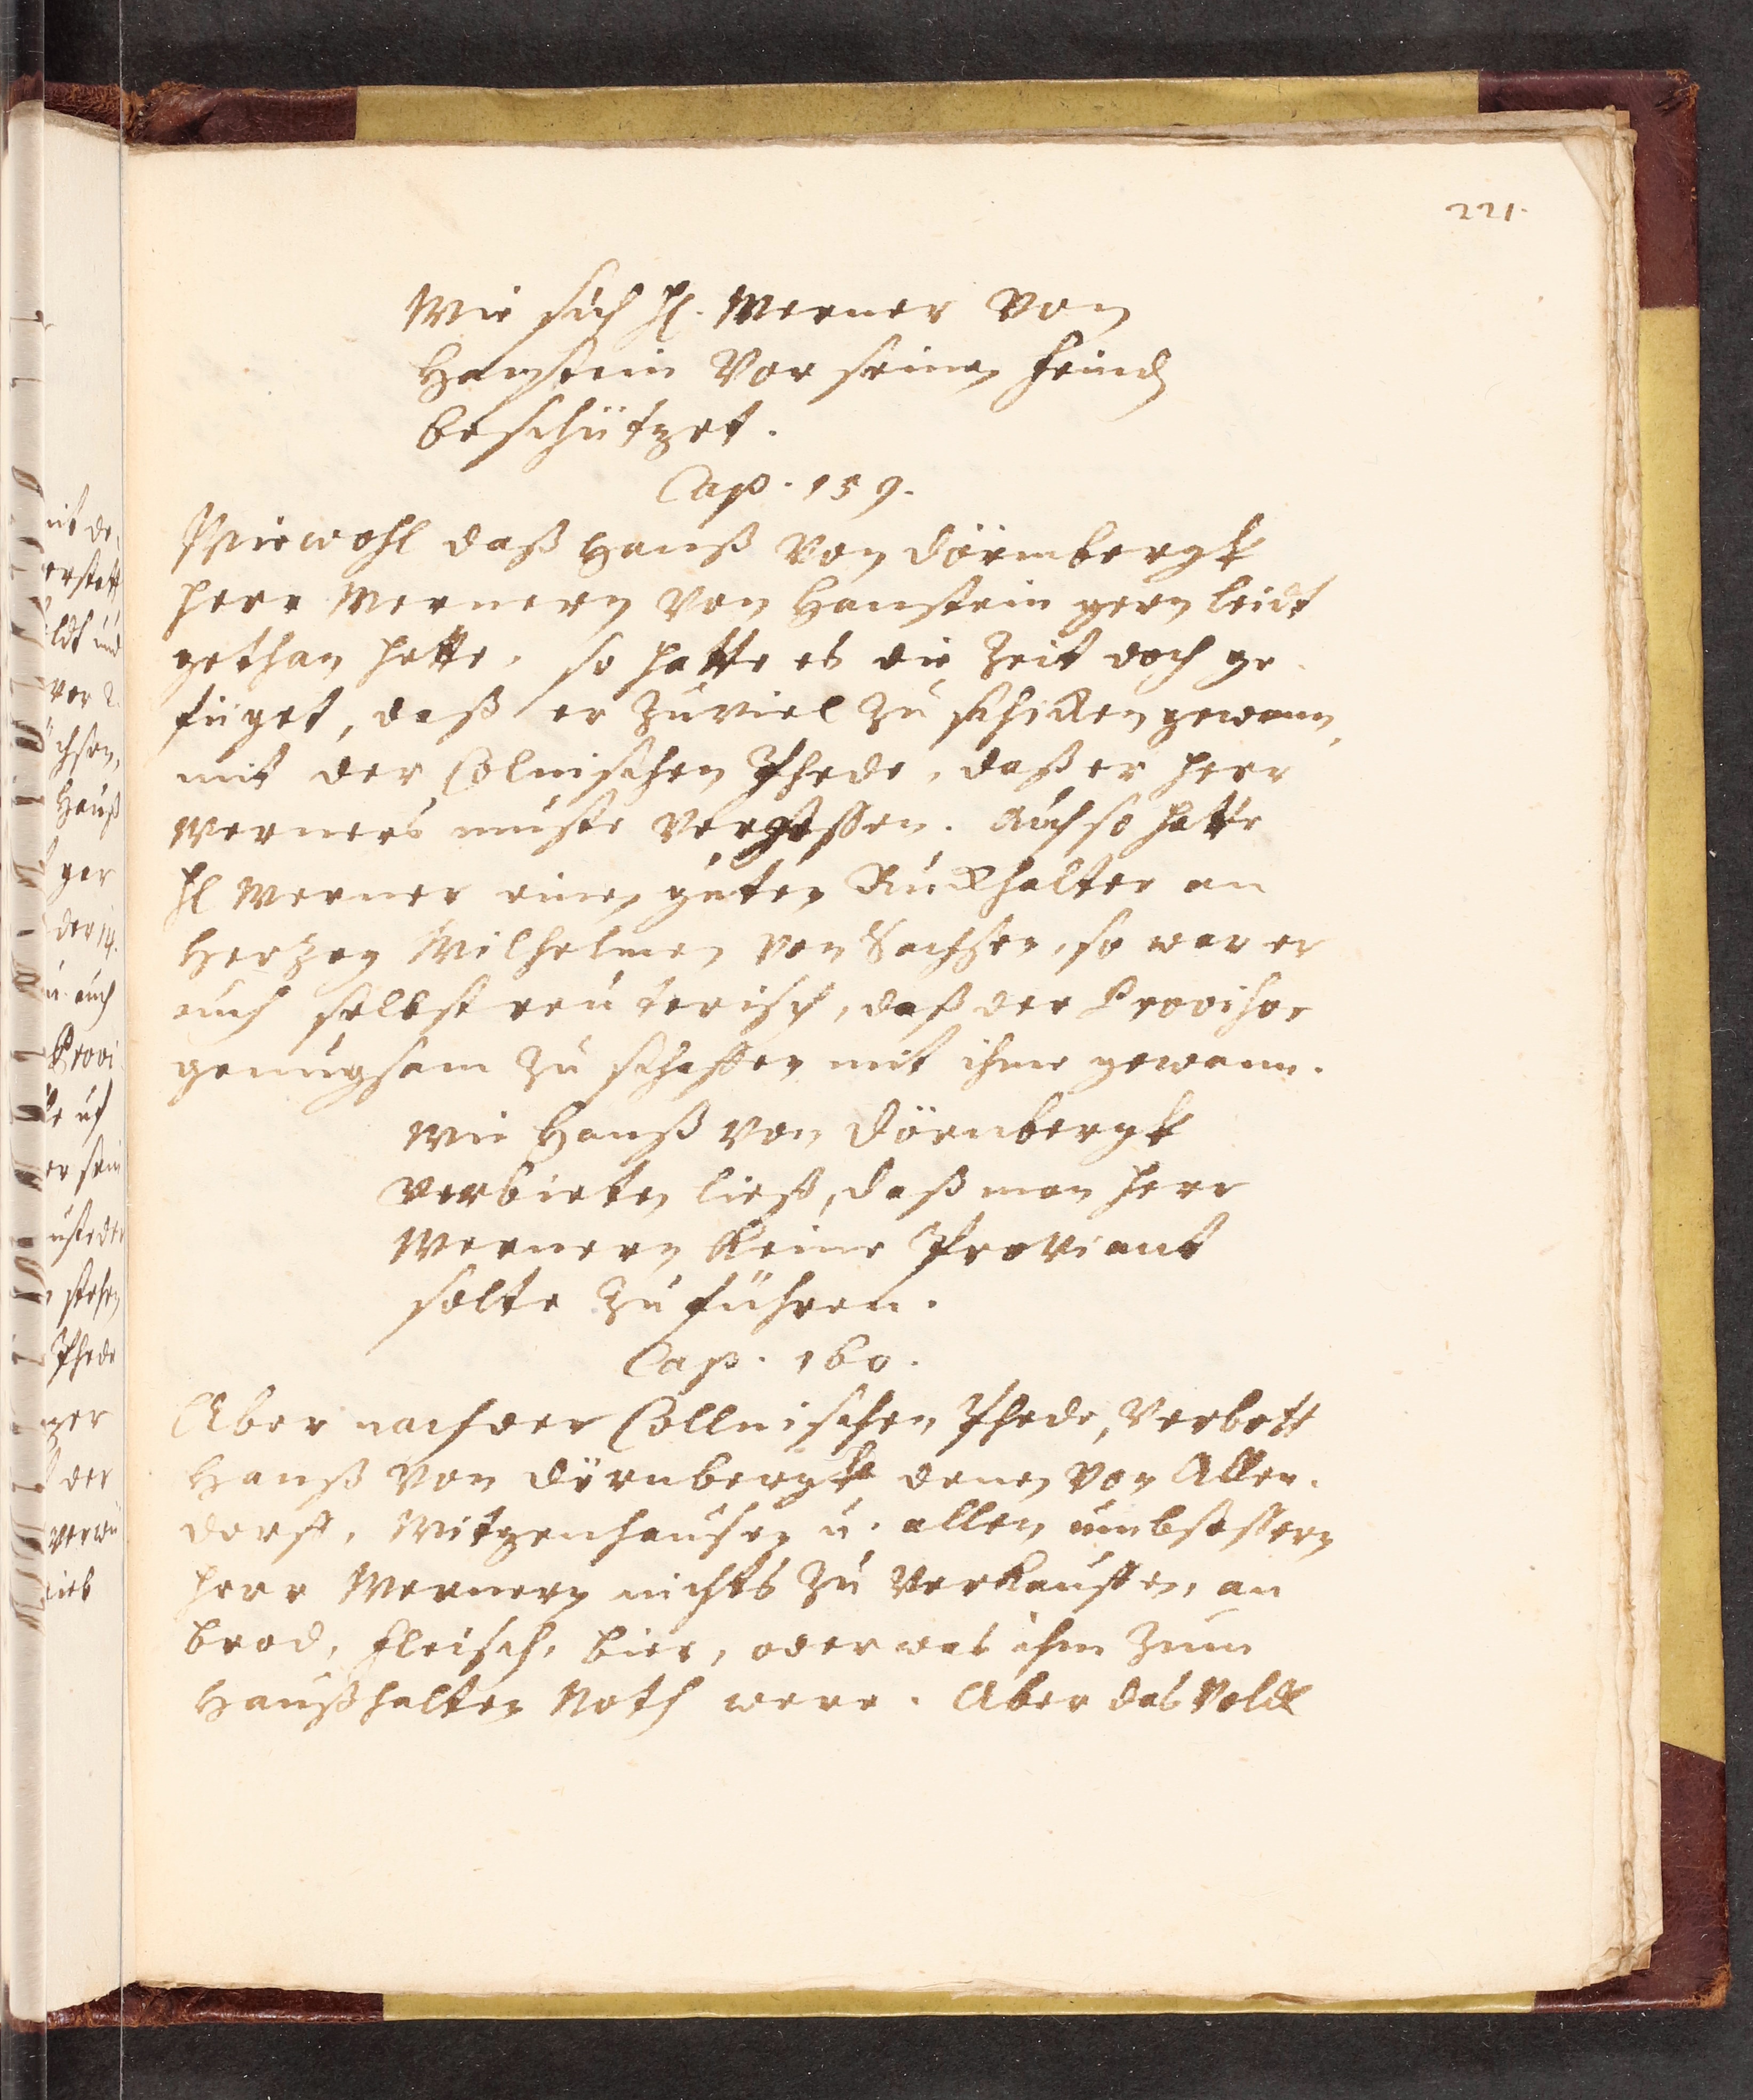 221.
Wie sich H. Werner von
Hanstein vor seinen feind
beschützet.
Cap. 159.
Wiewohl daß Hanß von Dörnbergk
Herr Wernern von Hanstein gern leidt
gethan hette, so hatte es die Zeit doch ge-
füget, daß er zuviel zu schicken gewann,
mit der Colnischen Phede, daß er Herr
Werners muste vergessen. Auch so hatte
H Werner einen guten Rückhalter an
Hertzog Wilhelmen von Sachsen, so war er
auch selbst reuterisch, daß der Provisor
genugsam zu schaffen mit ihme gewann.
Wie Hanß von Dörnbergk
verbieten ließ, daß man Herr
Wernern keine Proviant
solte zuführen.
Cap. 160.
Aber nach der Collnischen Phede, verbott
Hanß von Dörnbergk denen von Allen-
dorff, Witzenhausen u. allen umbsessern
Herr Wernern nichts zu verkauffen, an
brod, fleisch, bier, oder was ihm zum
Haußhalten Noth were. Aber das Volck